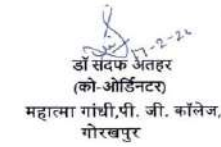 17-2-26
डॉ सदफ अतहर
(को-ओर्डिनटर)
महात्मा गांधी,पी. जी. कॉलेज,
गोरखपुर